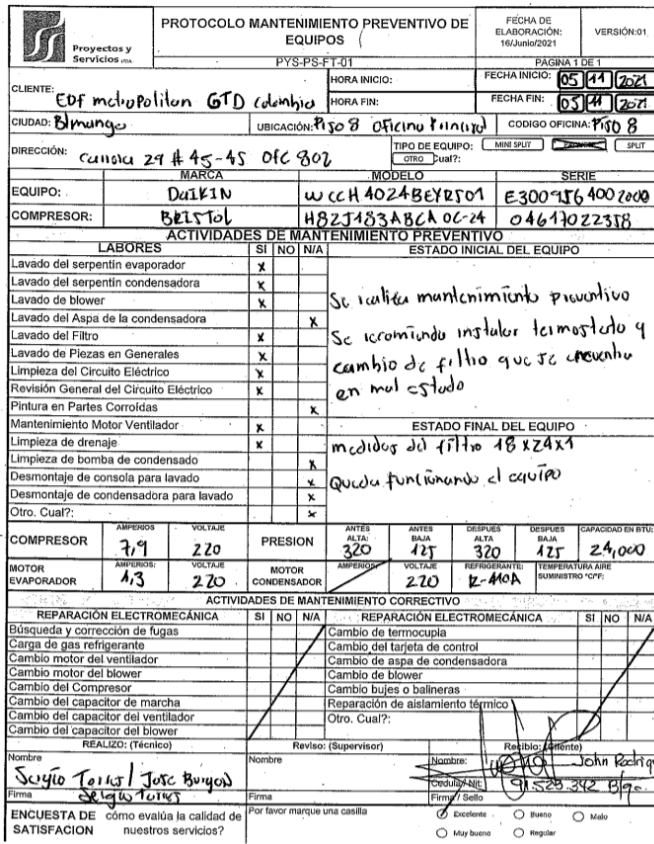 Proyectos y
Servicios LTDA.
PROTOCOLO MANTENIMIENTO PREVENTIVO DE
EQUIPOS
FECHA DE
ELABORACIÓN:
16/Junio/2021
VERSIÓN:01
PYS-PS-FT-01
PAGINA 1 DE 1
CLIENTE: Edf metropolitan GTD colombia
HORA INICIO:
FECHA INICIO: 05 11 2021
HORA FIN:
FECHA FIN: 05 11 2021
CIUDAD: B/manga
UBICACIÓN: Piso 8 oficina Principal
CODIGO OFICINA: Piso 8
DIRECCIÓN: 29 # 45-45 Ofc 802
TIPO DE EQUIPO: MINI SPLIT SPLIT
OTRO Cual?:
MARCA MODELO SERIE
EQUIPO: DAIKIN WCCH4024BEYR501 E3009564002000
COMPRESOR: BRISTOL H82J183ABCA 0C-24 04617022358
ACTIVIDADES DE MANTENIMIENTO PREVENTIVO
LABORES SI NO N/A
Lavado del serpentin evaporador x
Lavado del serpentin condensadora x
Lavado de blower x
Lavado del Aspa de la condensadora x
Lavado del Filtro x
Lavado de Piezas en Generales x
Limpieza del Circuito Eléctrico x
Revisión General del Circuito Eléctrico x
Pintura en Partes Corroídas x
Mantenimiento Motor Ventilador x
Limpieza de drenaje x
Limpieza de bomba de condensado x
Desmontaje de consola para lavado x
Desmontaje de condensadora para lavado x
Otro. Cual?: x
ESTADO INICIAL DEL EQUIPO
Se realiza mantenimiento preventivo
Se recomienda instalar termostato y
cambio de filtro que se encuentra
en mal estado
ESTADO FINAL DEL EQUIPO
medidas del filtro 18x24x1
Queda funcionando el equipo
COMPRESOR AMPERIOS 7,9 VOLTAJE 220 PRESION ANTES ALTA: 320 ANTES BAJA 125 DESPUES ALTA 320 DESPUES BAJA 125 CAPACIDAD EN BTU: 24,000
MOTOR EVAPORADOR AMPERIOS: 1,3 VOLTAJE 220 MOTOR CONDENSADOR AMPERIOS VOLTAJE 220 REFRIGERANTE: R-410A TEMPERATURA AIRE SUMINISTRO °C/°F:
ACTIVIDADES DE MANTENIMIENTO CORRECTIVO
REPARACIÓN ELECTROMECÁNICA SI NO N/A
Búsqueda y corrección de fugas
Carga de gas refrigerante
Cambio motor del ventilador
Cambio motor del blower
Cambio del Compresor
Cambio del capacitor de marcha
Cambio del capacitor del ventilador
Cambio del capacitor del blower
REPARACIÓN ELECTROMECÁNICA SI NO N/A
Cambio de termocupla
Cambio del tarjeta de control
Cambio de aspa de condensadora
Cambio de blower
Cambio bujes o balineras
Reparación de aislamiento térmico
Otro. Cual?:
REALIZO: (Técnico)
Nombre
Sergio Torres/ Jose
Firma Sergio Torres
Reviso: (Supervisor)
Nombre
Firma
Recibio: (Cliente)
Nombre: John
Cedula/Nit: 91.529.342 B/ga.
Firma / Sello
ENCUESTA DE SATISFACION
cómo evalúa la calidad de nuestros servicios?
Por favor marque una casilla
Excelente Bueno Malo
Muy bueno Regular